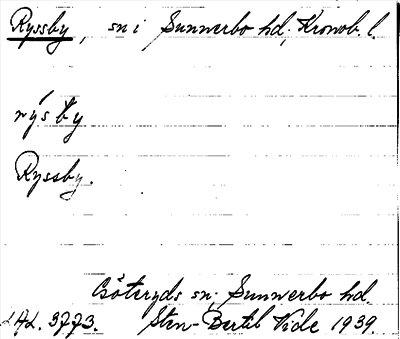 Ryssby, sn i Sunnerbo hd, Kronob. l.
rýsby
Ryssby.
Göteryds sn. Sunnerbo hd.
LAL. 3773. Sten-Bertil Vide 1939.